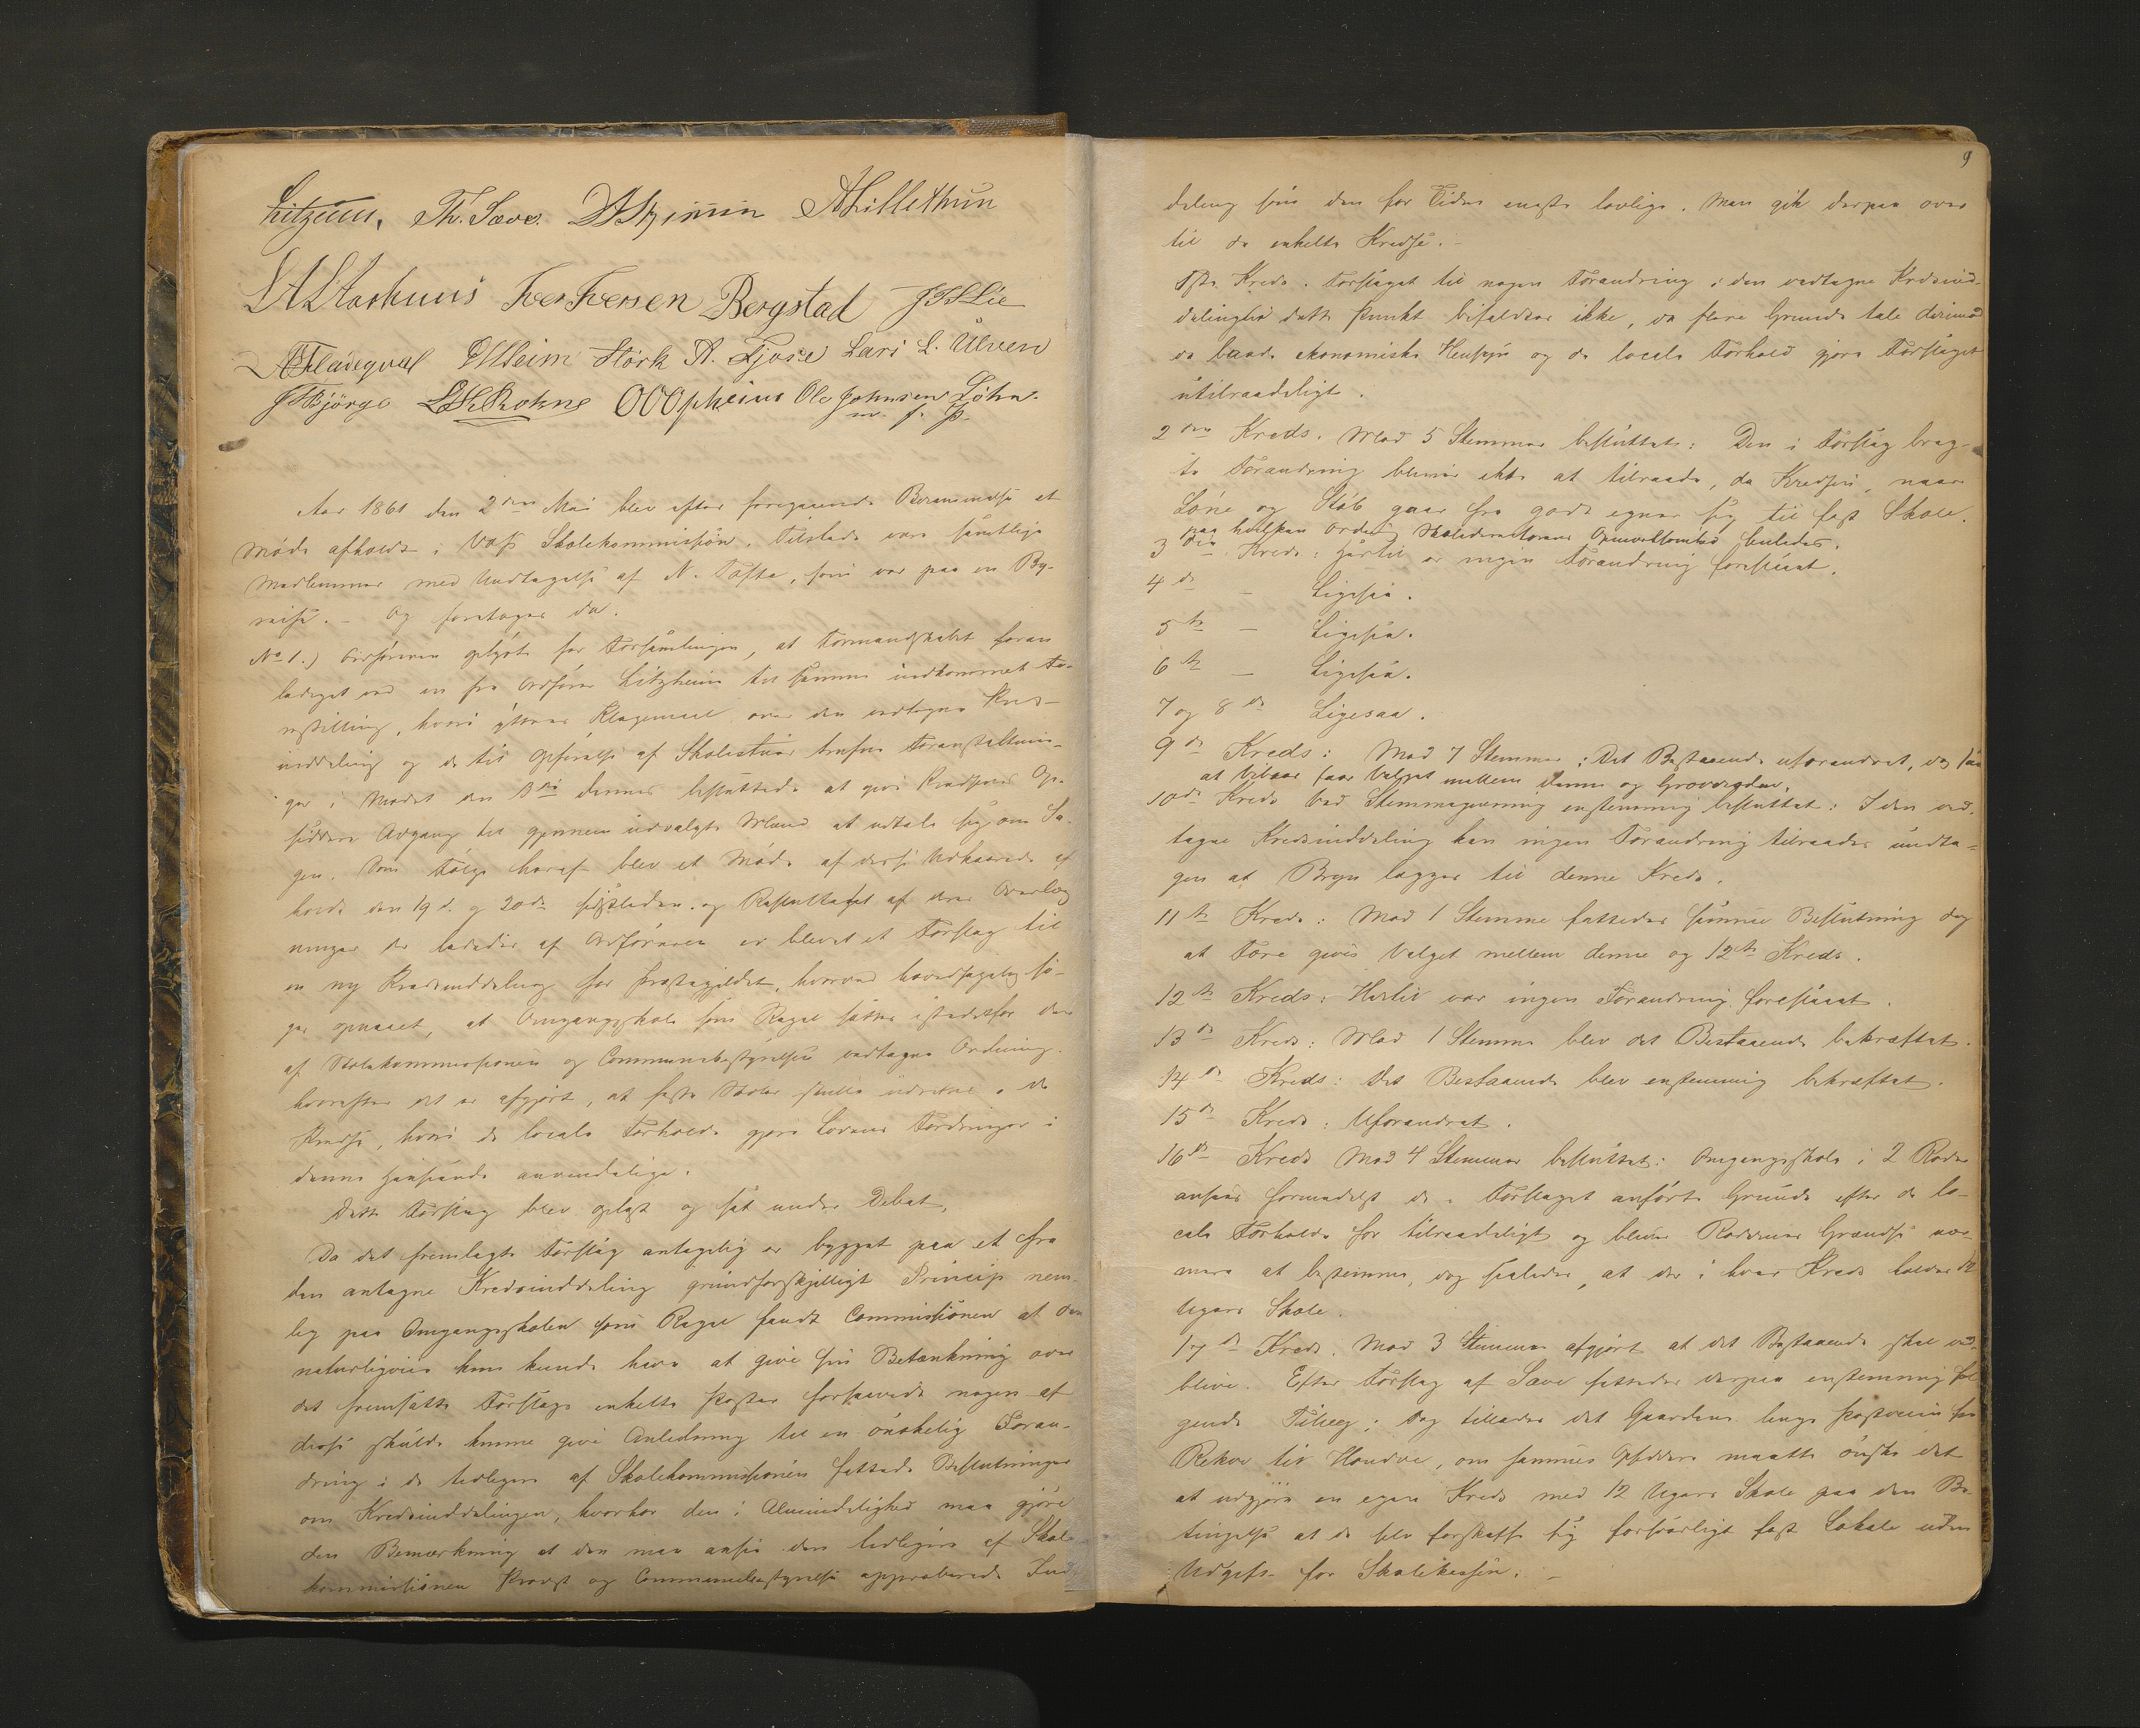 Litzheim. Th. Sæve. DASkjerven AKillethun
LALLarhuus Iver Iversen Bergstad JJLie
AFladeqval OUHeim Hörk A. Gjose Lars L. Ulven
JTBjörge LKRokne OOOpheim Ole Johnsen Löhn.
m. f. P.
Aar 1861 den 2den Mai blev efter foregaaende Berammelse et
Møde afholdt i Voss Skolekommission. Tilstede vare samtlige
Medlemmer med Undtagelse af N. Tøfte, som var paa en By-
reise. – Og foretoges da.
No 1.) Ordføreren oplyste for Forsamlingen, at Formandskabet foran
lediget ved en fra Ordfører Litzheim til samme indkommet Fo-
restilling, hvori yttres Klagemaal over den vedtagne Kreds-
inddeling og de til Opførelse af Skolestuer trufne Foranstaltnin-
ger i Mødet den 3die dennes besluttede at give Kredsenes Op-
siddere Adgang til gjennem udvalgte Mænd at udtale sig om Sa-
gen. Som Følge heraf blev et Møde af disse Udkaarede af-
holdt den 19d. og 20de sidstleden og Resultatet af deres Overlæg
ninger der lededes af Ordføreren er blevet et Forslag til
en ny Kredsinddeling for Præstegjeldet, hvorved hovedsagelig sø-
ges opnaaet, at Omgangsskole som Regel sættes istedetfor den
af Skolekommissionen og Communebestyrelsen vedtagne Ordning.
hvorefter det er afgjort, at faste Skoler skulle indrettes i de
Kredse, hvori de locale Forholde gjøre Lovens Fordringer i
denne Henseende anvendelige.
Dette Forslag blev oplæst og sat under Debat.
Da det fremlagte Forslag antagelig er bygget paa et fra
den antagne Kredsinddeling grundforskjelligt Princip nem-
lig paa Omgangsskolen som Regel fandt Commissionen at den
naturligviis kun kunde have at give sin Betænkning over
det fremsatte Forslags enkelte Poster forsaavidt nogen af
disse skulde kunne give Anledning til en ønskelig Foran-
dring i de tidligere af Skolekommissionen fattede Beslutninger
om Kredsinddelingen, hvorhos den i Almindelighed maa gjøre
den Bemærkning at den maa ansee den tidligere af Skole-
kommissionen Provst og Communebestyrelse approberede Ind
9
deling som den for Tiden eneste lovlige. Man gik derpaa over
til de enkelte Kredse. –
1ste Kreds. Forslaget til nogen Forandring i den vedtagne Kredsind-
delinghed dette Punkt bifaldtes ikke, da flere Grunde tale derimod
da baade økonomiske Hensyn og de locale Forhold gjøre Forslaget
utilraadeligt.
2den Kreds. Mod 5 Stemmer besluttet: Den i Forslag brag-
te Forandring bliver ikke at tilraade, da Kredsen, naar
Løne og Støb gaar fra godt egner sig til fast Skole.
paa hvilken Orden Skoledirectionens Opmærksomhed henledes.
3die Kreds: Hertil er ingen Forandring foreslaaet.
4de – Ligesaa.
5te – Ligesaa.
6te – Ligesaa.
7 og 8de Ligesaa.
9de Kreds: Mod 7 Stemmer: Det Bestaaende uforandret, dog saa
at Vibaar faar Valget mellem denne og Grovereden.
10de Kreds ved Stemmegivning enstemmig besluttet: I den ved-
tagne Kredsinddeling kan ingen Forandring tilraades undta-
gen at Bryn lægges til denne Kreds.
11te Kreds: Mod 1 Stemme fattedes samme Beslutning dog
at Føre gives Valget mellem denne og 12te Kreds.
12te Kreds: Hertil var ingen Forandring foreslaaet.
13de Kreds: Mod 1 Stemme blev det Bestaaende bekræftet.
14de Kreds: Det Bestaaende blev enstemmig bekræftet.
15de Kreds: Uforandret.
16de Kreds Mod 4 Stemmer besluttet: Omgangsskole i 2 Roder
ansees formedelst de i Forslaget anførte Grunde efter de lo-
cale Forholde for tilraadeligt og bliver Rodernes Grændse nær-
mere at bestemme, dog saaledes, at der i hver Kreds holdes 12
Ugers Skole.
17de Kreds. Mod 3 Stemmer afgjort at det Bestaaende skal ved-
blive. Efter Forslag af Sæve fattedes derpaa enstemmig føl
gende Tillæg: Dog tillades det Gaardene langs Postveien fra
Rekve til Hondve, om sammes Opsiddere maatte ønske det
at udgjøre en egen Kreds med 12 Ugers Skole paa den Be-
tingelse at de selv forskaffe sig forsvarligt fast Lokale uden
Udgift for Skolekassen. –